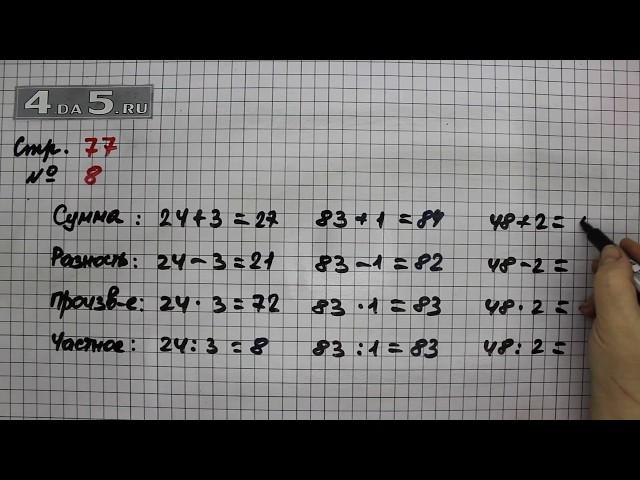 4DA5.RU
Стр. 77
№ 8
Сумма : 24+3=27 83+1=84 48+2=
Разность: 24-3=21 83-1=82 48-2=
Произв-е: 24·3=72 83·1=83 48·2=
Частное : 24:3=8 83:1=83 48:2=